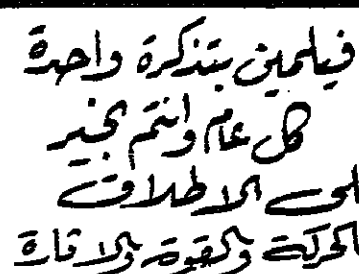 فيلمين بتذكرة واحدة
كل عام وانتم بخير
لى الاطلاق
الحركة والقوة والاثارة